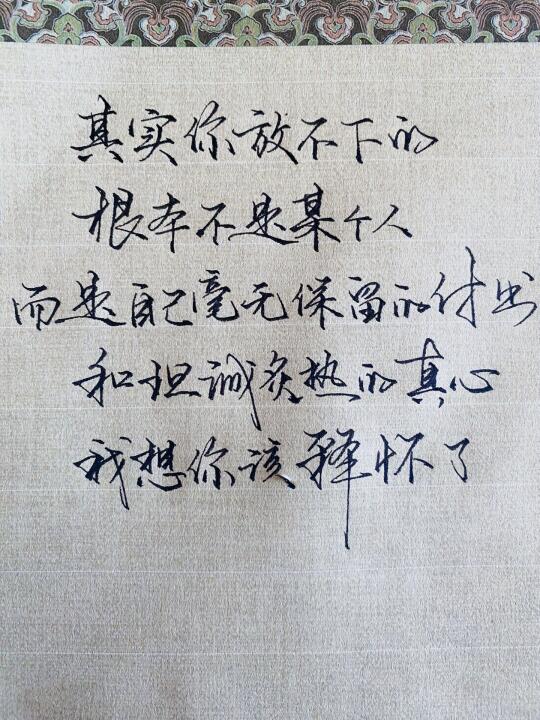 其实你放不下的
根本不是某个人
而是自己毫无保留的付出
和坦诚炙热的真心
我想你该释怀了